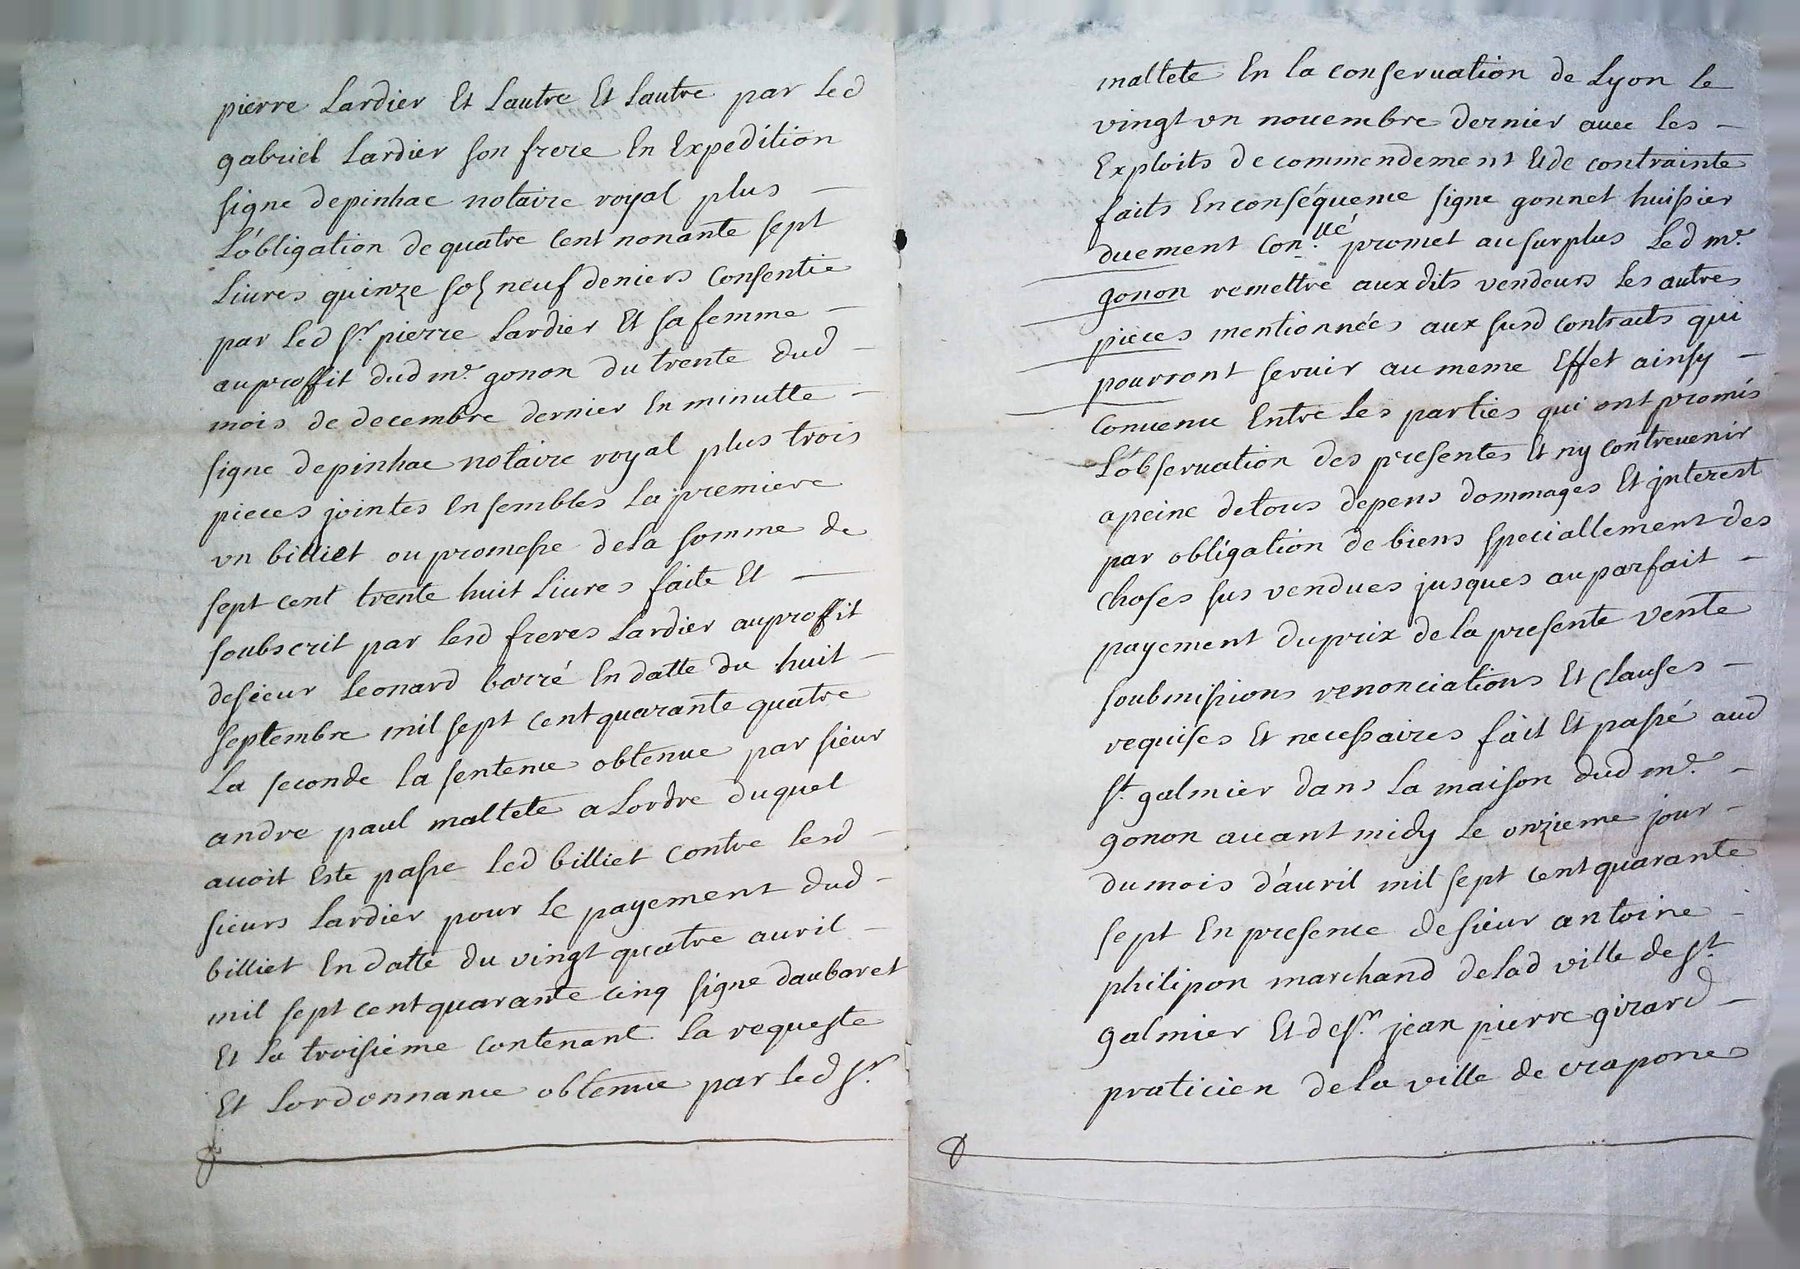 pierre Lardier Et Lautre Et Lautre par Led
gabriel Lardier son frere En Expedition
signe depinhac notaire royal plus —
L'obligation de quatre Cent nonante sept
Livres quinze sols neuf deniers Consentie
par Led Sr. pierre Lardier Et sa femme —
au proffit dud me. gonon du trente dud —
mois de decembre dernier En minutte —
signe depinhac notaire royal plus trois
pieces jointes Ensembles La premiere
un billiet ou promesse dela somme de
sept cent trente huit Livres faite Et —
soubscrit par Lesd freres Lardier au proffit
desieur Leonard barré En datte du huit —
septembre mil sept Cent quarante quatre
La seconde la sentence obtenue par sieur
andre paul maltete a Lordre duquel
avoit Este passe Led billiet contre Lesd —
sieurs Lardier pour Le payement dud —
billiet En datte du vingt quatre avril —
mil sept cent quarante cinq signe daubaret
Et La troisieme contenant La requeste
Et Lordonnance obtenue par Led Sr.
maltete En la conservation de Lyon le
vingt un novembre dernier avec Les —
Exploits de commendement Et de contrainte
faits En conséquence signe gonnet huissier
duement con.llé promet au surplus Led me.
gonon remettre aux dits vendeurs les autres
pieces mentionnées aux susd contracts qui
pourront servir au meme Effet ainsy —
Convenu Entre Les parties qui ont promis
L'observation des presentes Et ny contrevenir
a peine de tous depens dommages Et jnterest
par obligation de biens speciallement des
choses sus vendues jusques au parfait —
payement du prix de la presente vente
soubmissions renonciations Et Clauses —
requises Et necessaires fait Et passé aud
St. galmier dans La maison dud me. —
gonon avant midy Le onzieme jour —
du mois d'avril mil sept Cent quarante
sept En presence de sieur antoine —
philipon marchand delad ville de St.
galmier Et de Sr. jean pierre girard —
praticien dela ville de crapone